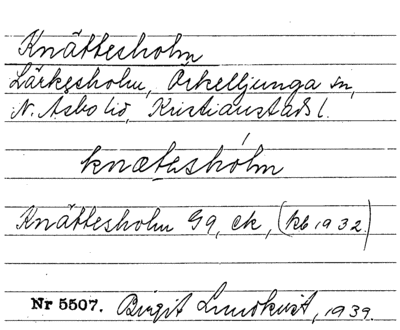 Knättesholm
Lärkesholm, Örkelljunga sn,
N. Åsbo hd, Kristianstads l.
knætəshólm
Knättesholm Gg, ek, (kb 1932.)
Nr 5507. Birgit Lundkvist, 1939.